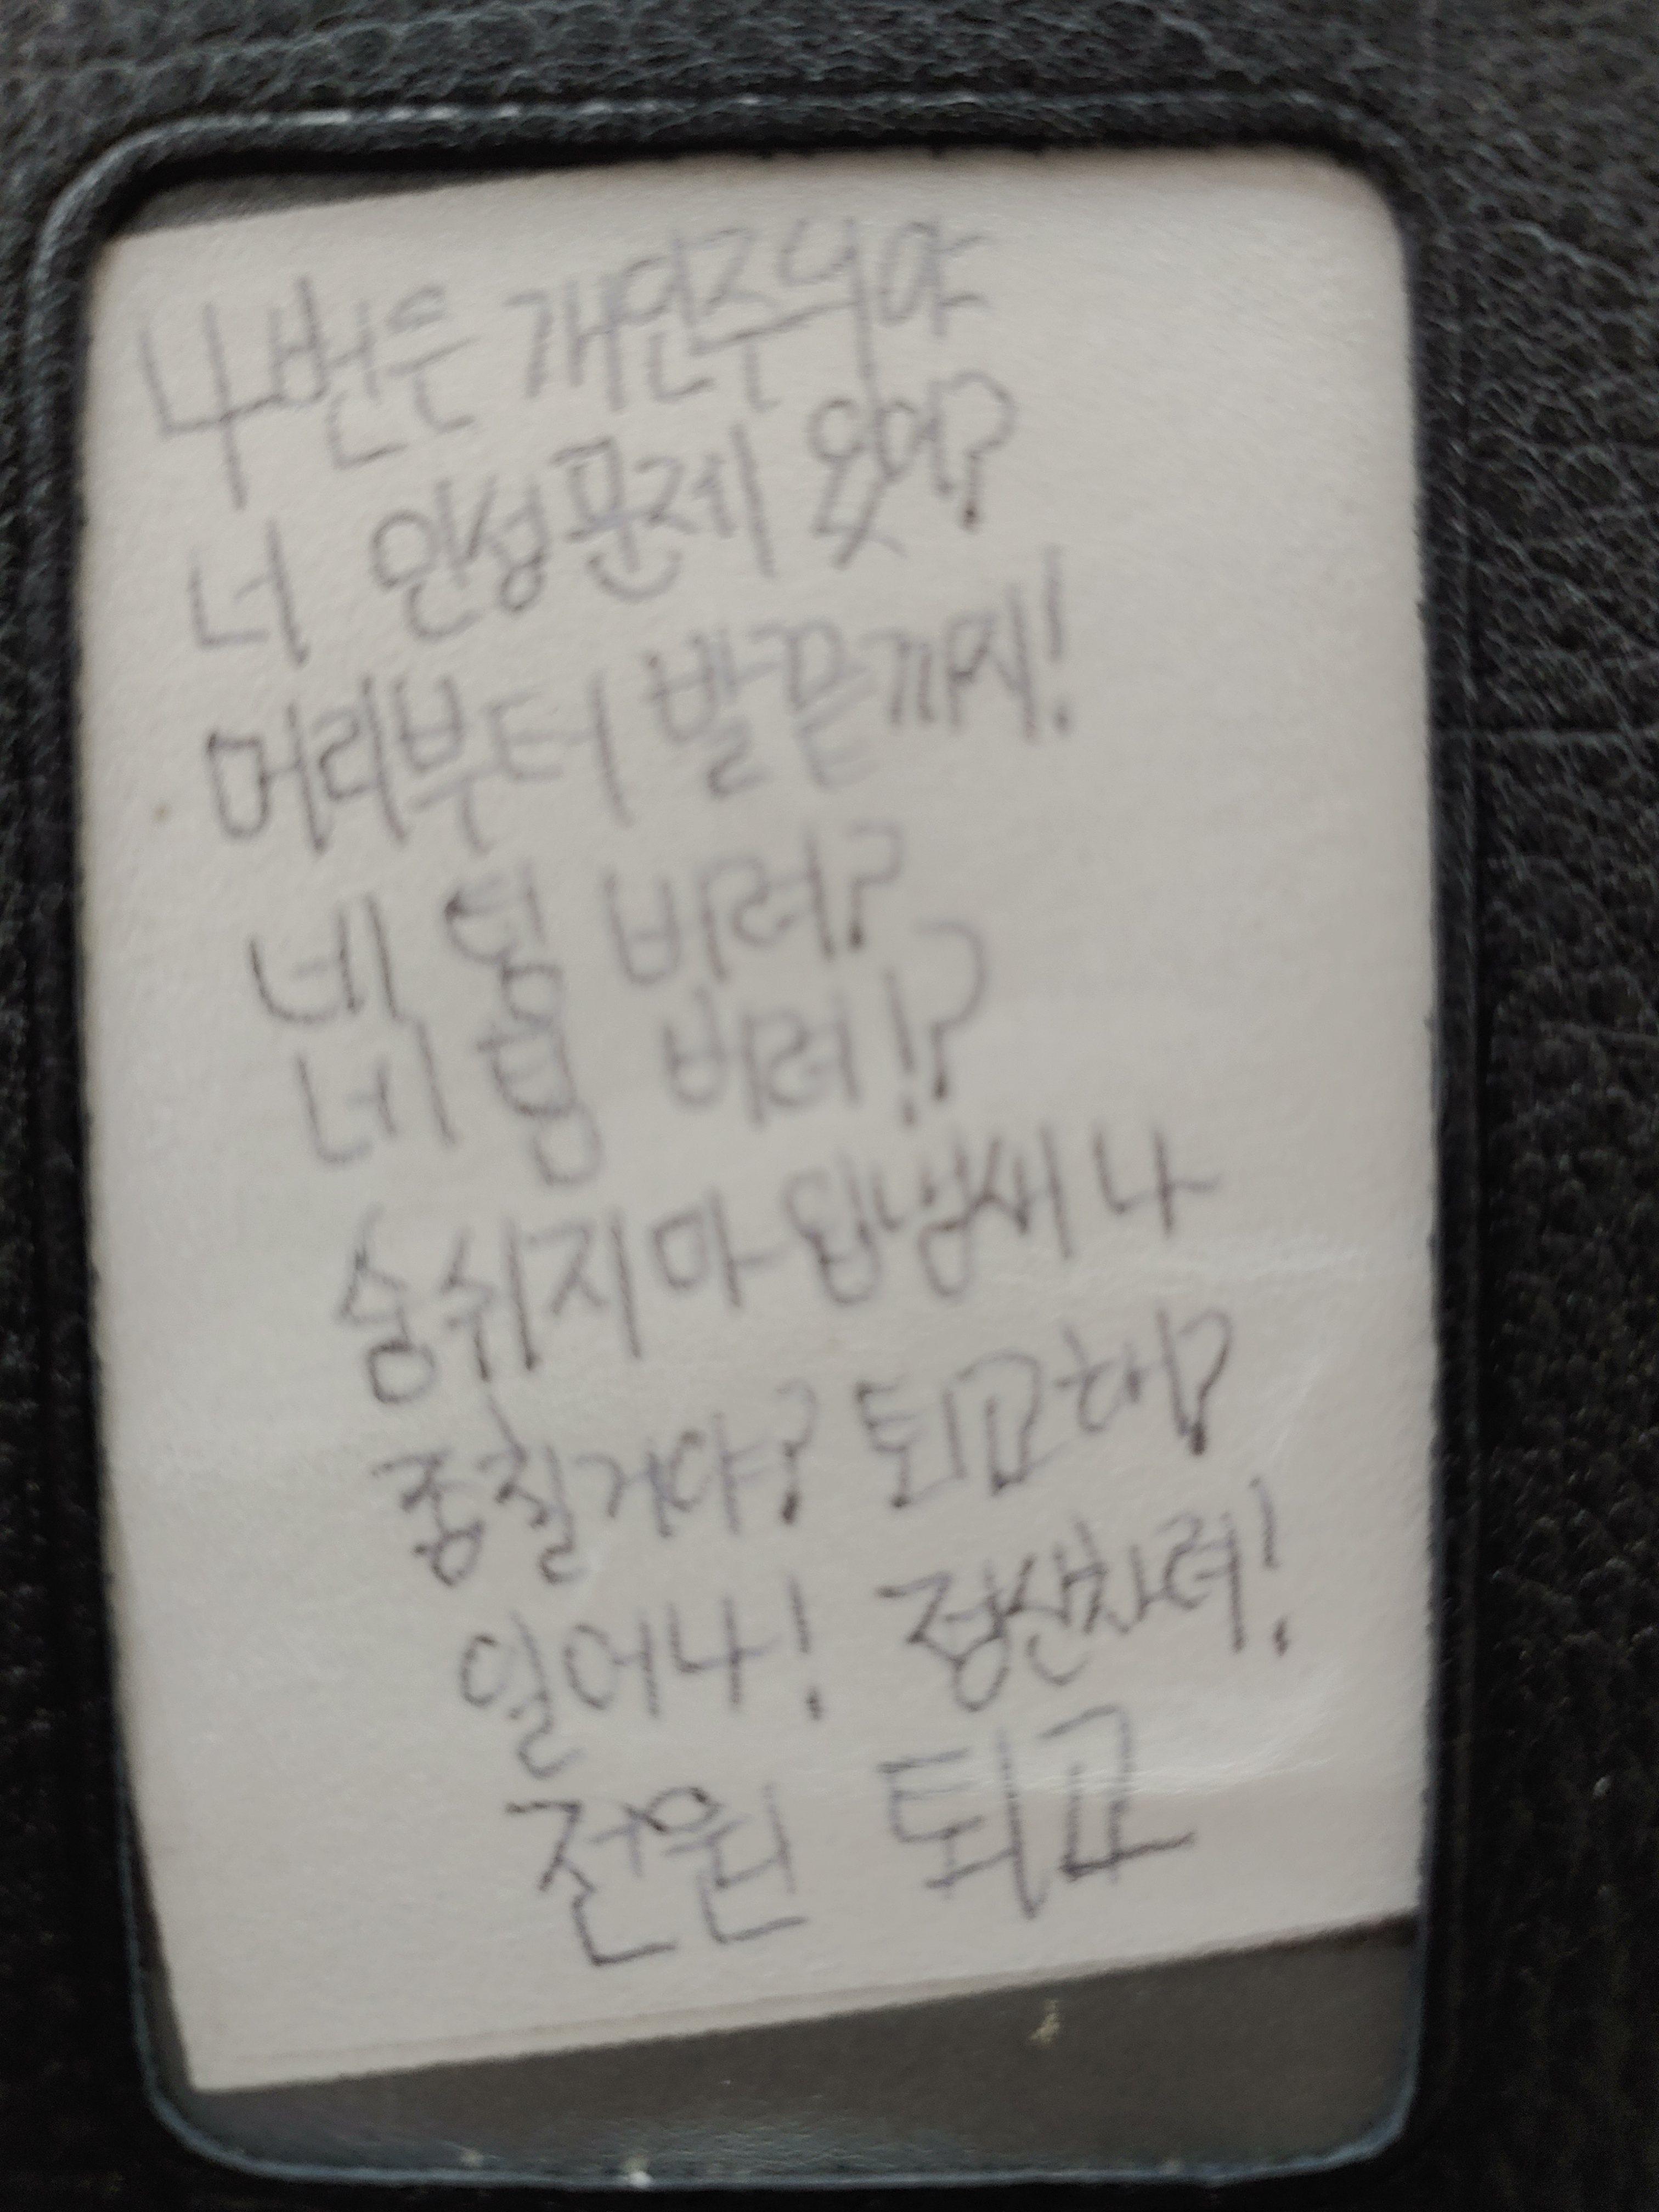 4번은 개인주의야
너 인성문제 있어?
머리부터 발끝까지!
네 팀 버려?
네 팀 버려!?
숨쉬지마 입냄새 나
중칠거야? 퇴교해?
일어나! 정신차려!
전원 퇴교